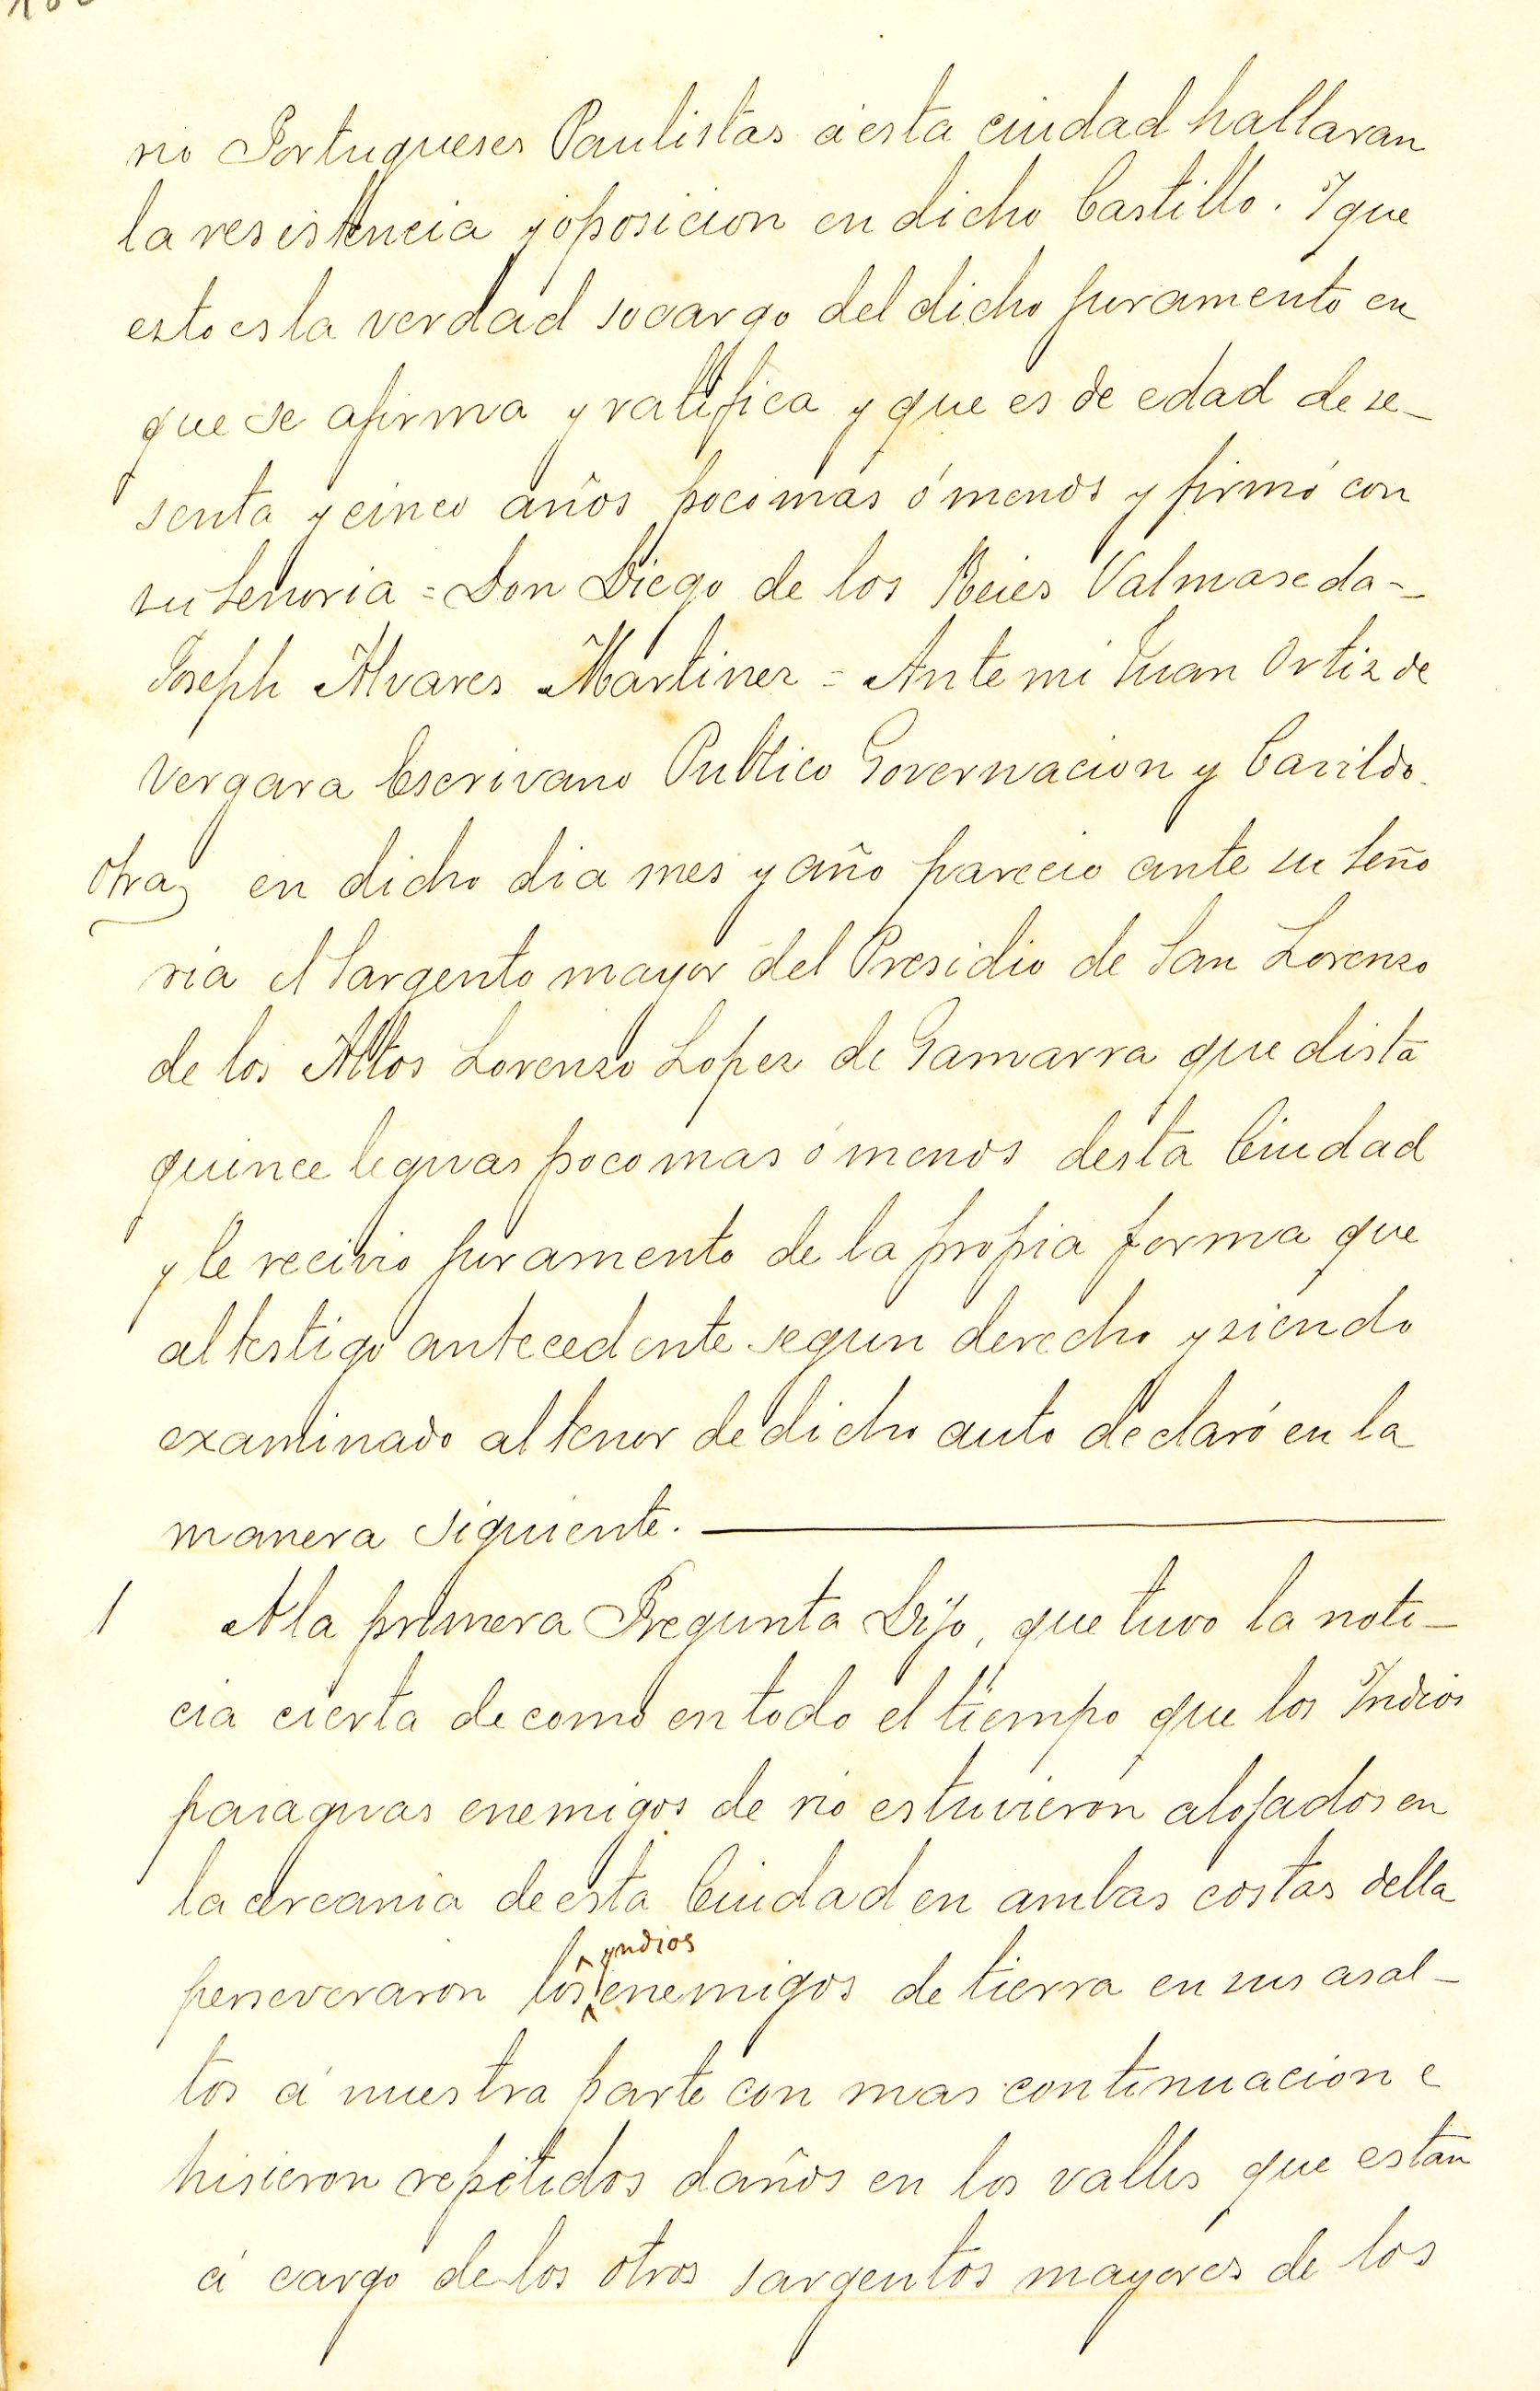 rio Portugueses Paulistas á esta ciudad hallaran
la resistencia y oposicion en dicho Castillo. Y que
esto es la verdad socargo del dicho juramento en
que se afirma y ratifica y que es de edad de se-
senta y cinco años poco mas ó menos y firmó con
su Senoria = Don Diego de los Reies Valmaseda =
Joseph Alvares Martinez = Ante mi Juan Ortiz de
Vergara Escrivano Publico Governacion y Cavildo.
Otra en dicho dia mes y año parecio ante su Seño
ria el Sargento mayor del Presidio de San Lorenzo
de los Altos Lorenzo Lopez de Gamarra que dista
quince leguas poco mas ó menos desta Ciudad
y le recivio juramento de la propia forma que
al testigo antecedente segun derecho y siendo
examinado al tenor de dicho auto declaró en la
manera siguiente.
1 A la primera Pregunta Dijo, que tuvo la noti-
cia cierta de como en todo el tiempo que los Indios
paiaguas enemigos de rio estuvieron alojados en
la cercania de esta Ciudad en ambas costas della
perseveraron los yndios enemigos de tierra en sus asal-
tos á nuestra parte con mas continuacion e
hisieron repetidos daños en los valles que estan
á cargo de los otros sargentos mayores de los